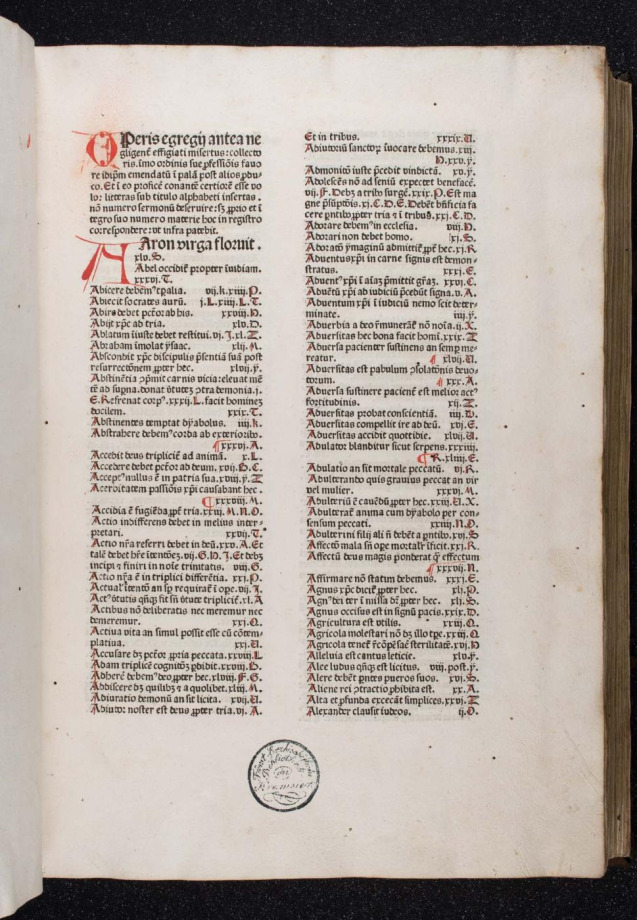 OPeris egregij antea ne
gligent̄ effigiati misertus: collecto
ris. imo ordinis sue ꝓfessiōis fauo
re idip̄m emendatū ī palā post alios ꝓdu-
co. Et ī eo proficē conantē certiorē esse vo
lo: litteras sub titulo alphabeti insertas.
nō numero sermonū deseruire: sꝫ ꝓprio et ī
tegro suo numero materie hoc in registro
correspondere: vt infra patebit.
AAron virga floruit.
xlv. S.
Abel occidit̄ propter īuidiam.
xxxvi. T.
Abicere debem⁹ tꝑalia. vij. k. xiiij. P.
Abiecit socrates aurū. j. L. xiiij. L. T.
Abire debet pctōr ab his. xxviij. N.
Abijt xp̄c ad tria. xlv. D.
Ablatum īiuste debet restitui. vj. J. xl. Z.
Abraham īmolat ysaac. xlij. M.
Abscondit xp̄c discipulis p̄sentiā suā post
resurrectōnem ꝓpter hec. xlvij. ẏ.
Abstinētia ꝯp̄mit carnis vicia: eleuat mē
tē ad suꝑna. donat v̄tutes ꝯtra demonia. j.
E. Refrenat corp⁹. xxxij. L. facit homines
docilem. xxix. T.
Abstinentes temptat dẏabolus. iiij. k.
Abstrahere debem⁹ corda ab exteriorib⁹.
¶ xxxvi. A.
Accedit deus triplicit̄ ad animā. x. L.
Accedere debet pctōr ad deum. xvij. B. C.
Accept⁹ nullus ē in patria sua. xviij. ẏ. Z
Acerbitatem passiōis xp̄i causabant hec.
¶ xxxviij. M.
Accidia ē fugiēda ꝓpt̄ tria. xxiij. M. N. O.
Actio indifferens debet in melius inter-
pretari. xxvij. T.
Actio nr̄a referri debet in deū. xxv. A. Et
talē debet hr̄e ītentōeꝫ. vij. G. H. J. Et debꝫ
incipi ⁊ finiri in noīe trinitatis. viij. G.
Actio nr̄a ē in triplici differētia. xxi. P.
Actual' ītentō an sꝑ requirat̄ ī ope. vij. J.
Act⁹ v̄tutis qn̄qꝫ fit sn̄ v̄tute triplicit̄. xl. A
Actibus nō deliberatis nec meremur nec
demeremur. xxi. Q.
Actiua vita an simul possit esse cū cōtem-
platiua. xxi. U.
Accusare dꝫ pctōr ꝓpria peccata. xxviij. L.
Adam triplicē cognitōꝫ ꝑdidit. xxviij. B.
Adherē debem⁹ deo ꝓpter hec. xlviij. F. G.
Addiscere dꝫ quilibꝫ ⁊ a quolibet. xliij. M.
Adiuratio demonū an sit licita. xvij. U.
Adiutor noster est deus ꝓpter tria. vj. A.
Et in tribus. xxxix. U.
Adiutoriū sanctoꝝ īuocare debemus. xvj.
N. xxv. ẏ.
Admonitō iuste p̄cedit vindictā. xv. ẏ.
Adolescēs nō ad seniū expectet benefacē.
vij. F. Debꝫ a tribꝰ surgē. xxix. P. Est ma
gne p̄sūptōis. xj. C. D. E. Debēt bn̄ficia fa
cere pn̄tib⁹ ꝓpter tria ⁊ ī tribus. xxj. C. D.
Adorare debem⁹ in ecclesia. viij. N.
Adorari non debet homo. xj. S.
Adoratō ymaginū admittit̄ ꝓpt̄ hec. xj. R.
Aduentus xp̄i in carne signis est demon-
stratus. xxxj. E.
Aduent⁹ xp̄i ī aīaꝫ p̄mittit gr̄aꝫ. xxvj. C.
Aduētū xp̄i ad iudiciū p̄cedūt signa. v. A.
Aduentum xp̄i ī iudiciū nemo scit deter-
minate. iiij. ẏ.
Aduerbia a deo īmunerāt̄ nō noīa. ij. X.
Aduersitas hec bona facit homī. xxix. Z
Aduersa pacienter sustinens an semꝑ me-
reatur. ¶ xlvij. U.
Aduersitas est pabulum ꝯsolatōnis deuo-
torum. ¶ xxx. A.
Aduersa sustinere pacient̄ est melior act⁹
fortitudinis. xij. Z.
Aduersitas probat conscientiā. iiij. D.
Aduersitas compellit ire ad deū. xvj. E.
Aduersitas accidit quottidie. xlvij. U.
Adulator blanditur sicut serpens. xxxiij.
¶ R. xliiij. E.
Adulatio an sit mortale peccatū. vj. R.
Adulterando quis grauius peccat an vir
vel mulier. xxxvj. M.
Adulteriū ē cauēdū ꝓpter hec. xxiij. U. X.
Adulterat̄ anima cum dẏabolo per con-
sensum peccati. xxiij. N. O.
Adulterini filij ali n̄ debēt a pn̄tib⁹. xvj. S
Affectō mala sn̄ ope mortalr̄ īficit. xxj. R.
Affectū deus magis ponderat ꝙ̄ effectum
¶ xxxvij. N.
Affirmare nō statim debemus. xxxj. E.
Agnus xp̄c dicit̄ ꝓpter hec. xlj. P.
Agn⁹ dei ter ī missa dr̄ ꝓpter hec. xlj. S.
Agnus occisus est in signū pacis. xxix. D.
Agricultura est vtilis. xxiij. Q.
Agricola molestari nō dꝫ illo tpe. xxiij. Q
Agricola tenet̄ rēcōpēsāe sterilitatē. xvj. N
Alleluia est cantus leticie. xlv. ẏ.
Alee ludus qn̄qꝫ est licitus. viij. post. ẏ.
Alere debēt pn̄tes pueros suos. xvj. S.
Aliene rei ꝯtractio ꝓhibita est. xx. A.
Alta et ꝓfunda excecāt simplices. xxv. T.
Alexander clausit iudeos. ij. O.